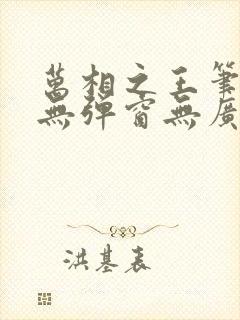 萬相之王筆
無彈窗無廣
洪基表